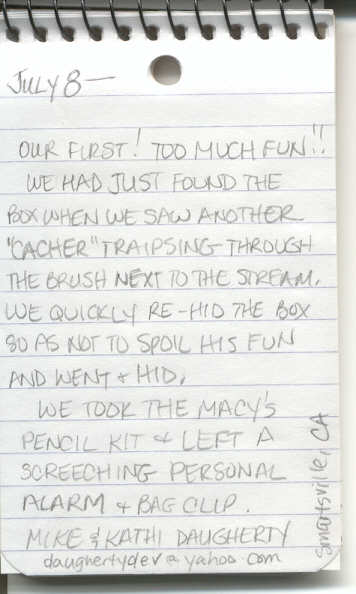 JULY 8—
OUR FIRST! TOO MUCH FUN!!
WE HAD JUST FOUND THE
BOX WHEN WE SAW ANOTHER
"CACHER" TRAIPSING THROUGH
THE BRUSH NEXT TO THE STREAM.
WE QUICKLY RE-HID THE BOX
SO AS NOT TO SPOIL HIS FUN
AND WENT & HID.
WE TOOK THE MACY'S
PENCIL KIT & LEFT A
SCREECHING PERSONAL
ALARM & BAG CLIP.
MIKE & KATHI DAUGHERTY
daughertydev@yahoo.com
Smartsville, CA